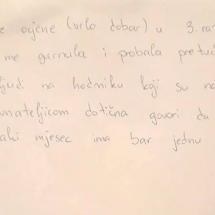 e ocjene (vrlo dobar) u 3. ra
me garnula i probala pretuć
ljudi na hodniku koji su na
nateljicom dotična govori da
aki mjesec ima bar jednu